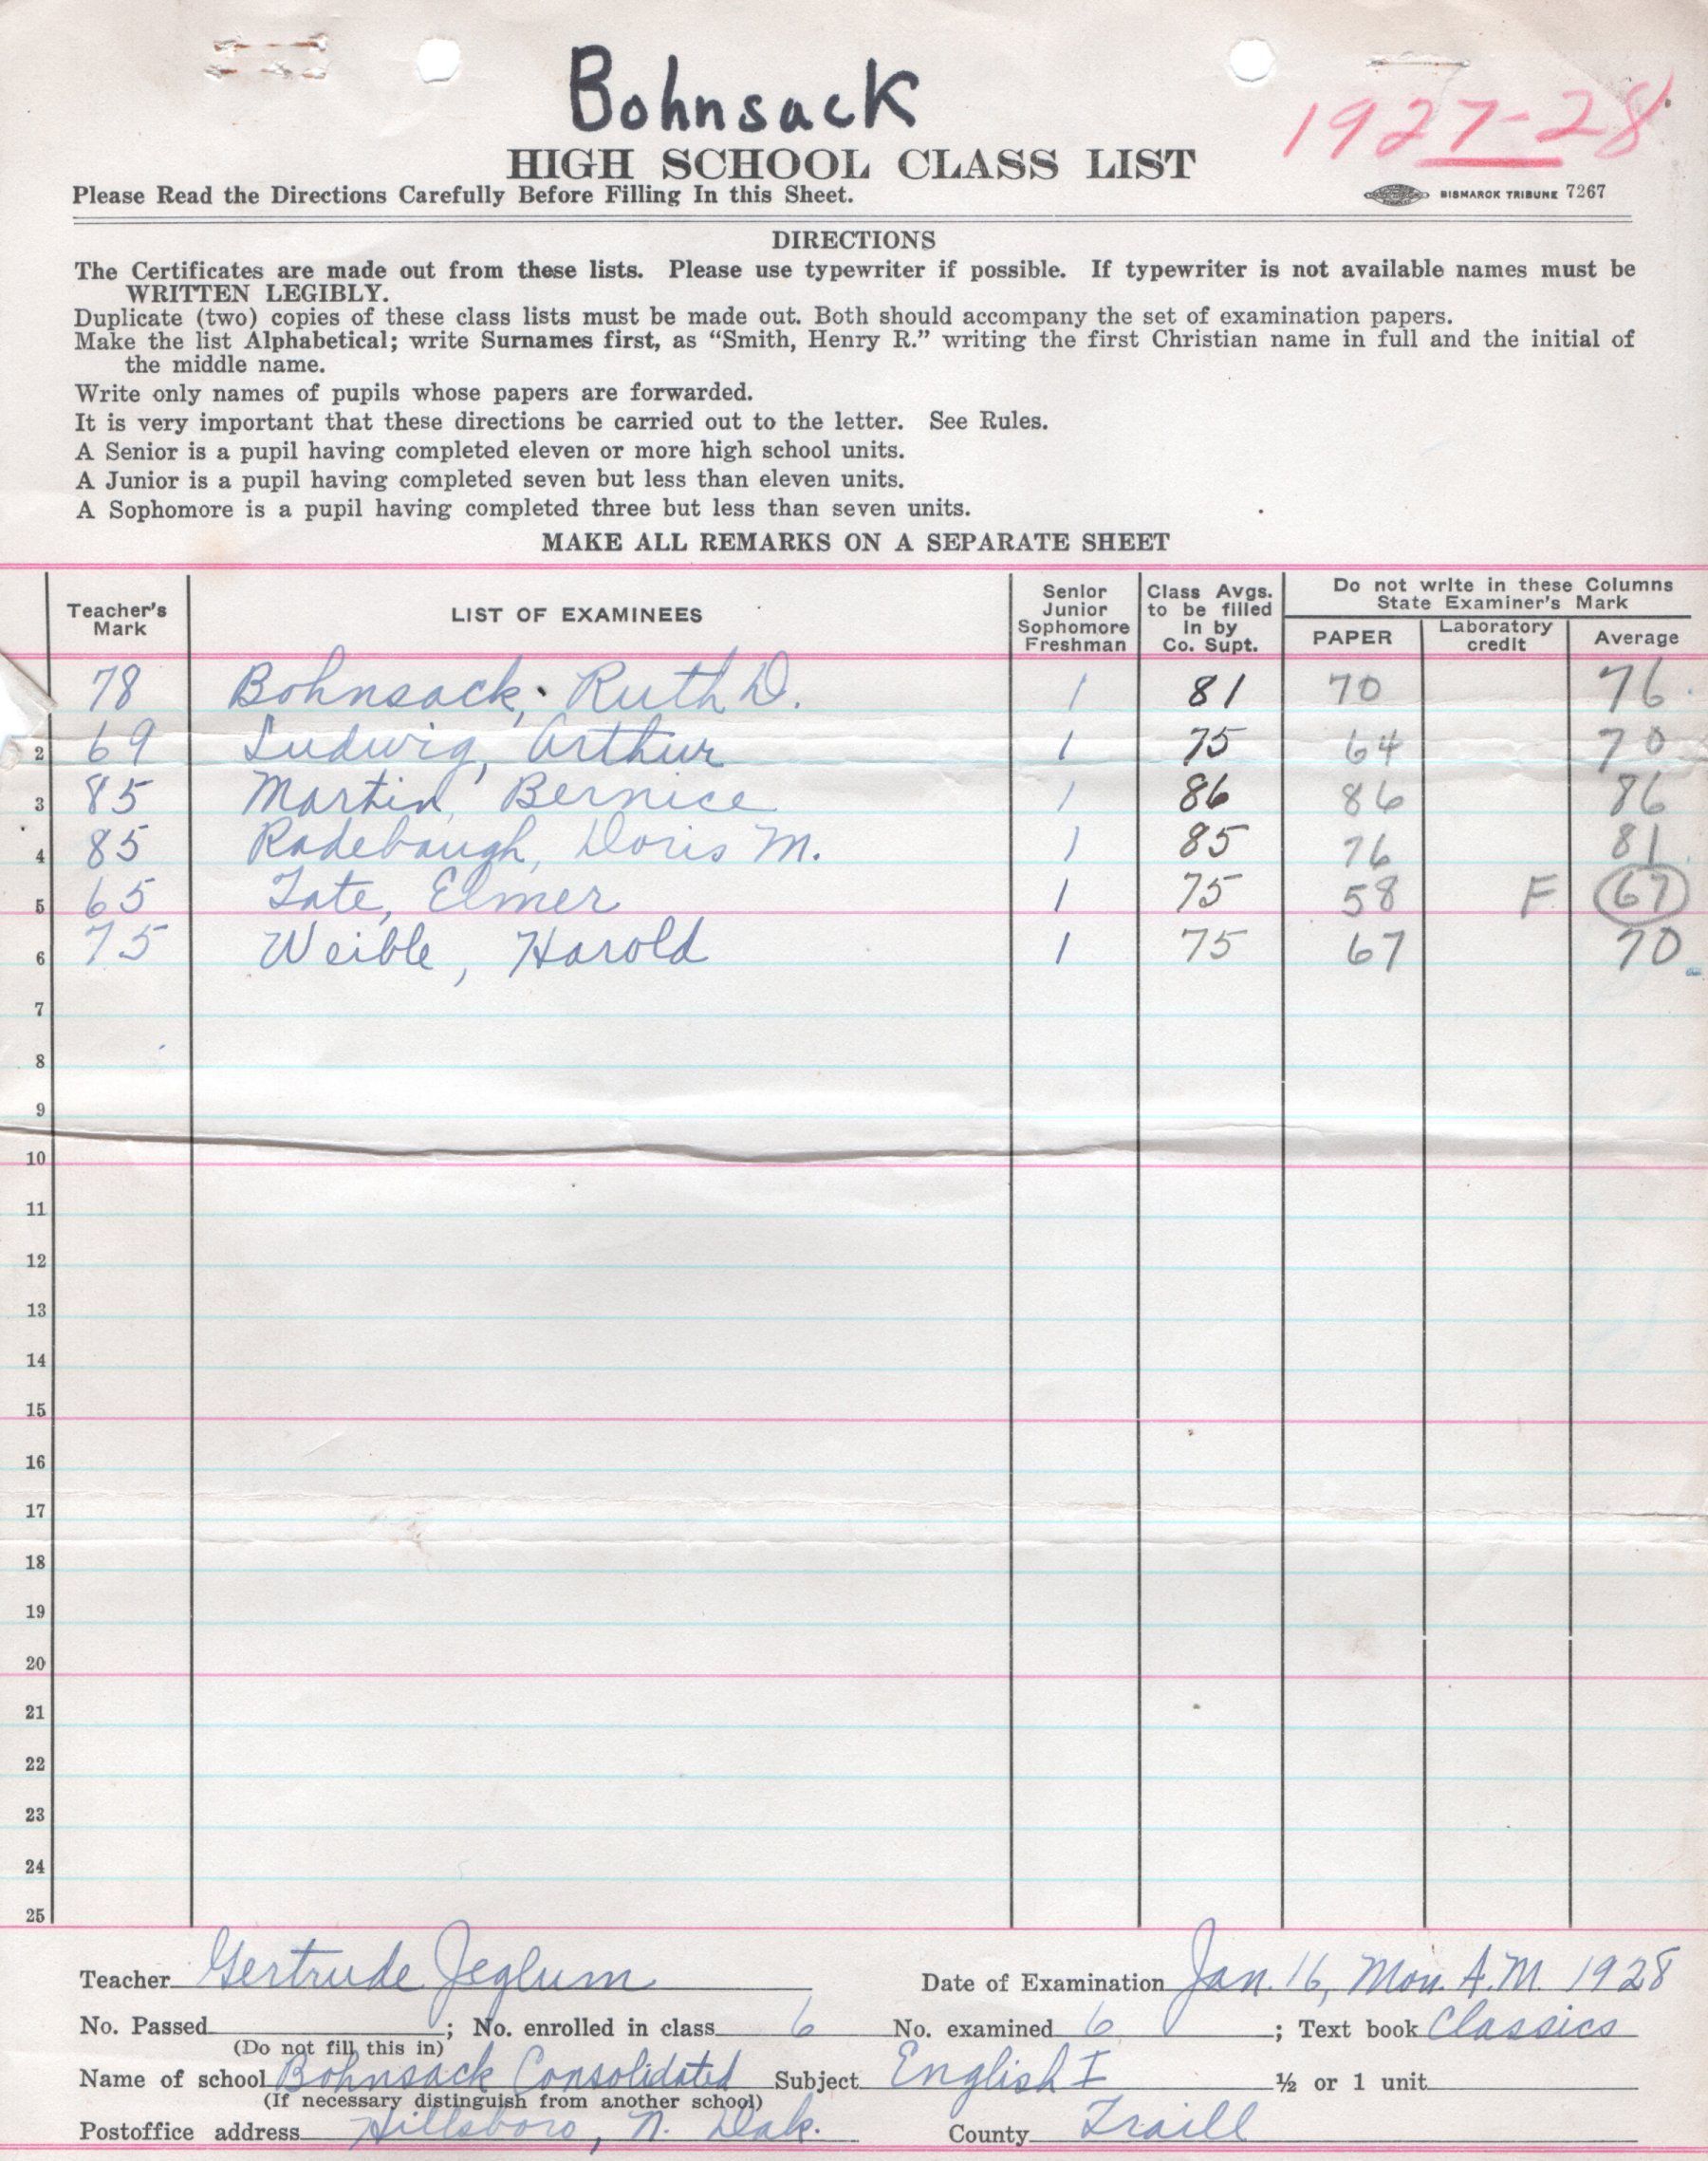 Bohnsack
1927-28
HIGH SCHOOL CLASS LIST
Please Read the Directions Carefully Before Filling In this Sheet.
BISMARCK TRIBUNE 7267
DIRECTIONS
The Certificates are made out from these lists. Please use typewriter if possible. If typewriter is not available names must be
WRITTEN LEGIBLY.
Duplicate (two) copies of these class lists must be made out. Both should accompany the set of examination papers.
Make the list Alphabetical; write Surnames first, as “Smith, Henry R.” writing the first Christian name in full and the initial of
the middle name.
Write only names of pupils whose papers are forwarded.
It is very important that these directions be carried out to the letter. See Rules.
A Senior is a pupil having completed eleven or more high school units.
A Junior is a pupil having completed seven but less than eleven units.
A Sophomore is a pupil having completed three but less than seven units.
MAKE ALL REMARKS ON A SEPARATE SHEET
Teacher's Mark LIST OF EXAMINEES Senior Junior Sophomore Freshman Class Avgs. to be filled in by Co. Supt. Do not write in these Columns State Examiner's Mark
PAPER Laboratory credit Average
78 Bohnsack, Ruth D. 1 81 70 76
2 69 Ludwig, Arthur 1 75 64 70
3 85 Martin, Bernice 1 86 86 86
4 85 Radebaugh, Doris M. 1 85 76 81
5 65 Tate, Elmer 1 75 58 F 67
6 75 Weible, Harold 1 75 67 70
7
8
9
10
11
12
13
14
15
16
17
18
19
20
21
22
23
24
25
Teacher Gertrude Jeglum Date of Examination Jan. 16, Mon. A.M. 1928
No. Passed ; No. enrolled in class 6 No. examined 6 ; Text book Classics
(Do not fill this in)
Name of school Bohnsack Consolidated Subject English I ½ or 1 unit
(If necessary distinguish from another school)
Postoffice address Hillsboro, N. Dak. County Traill